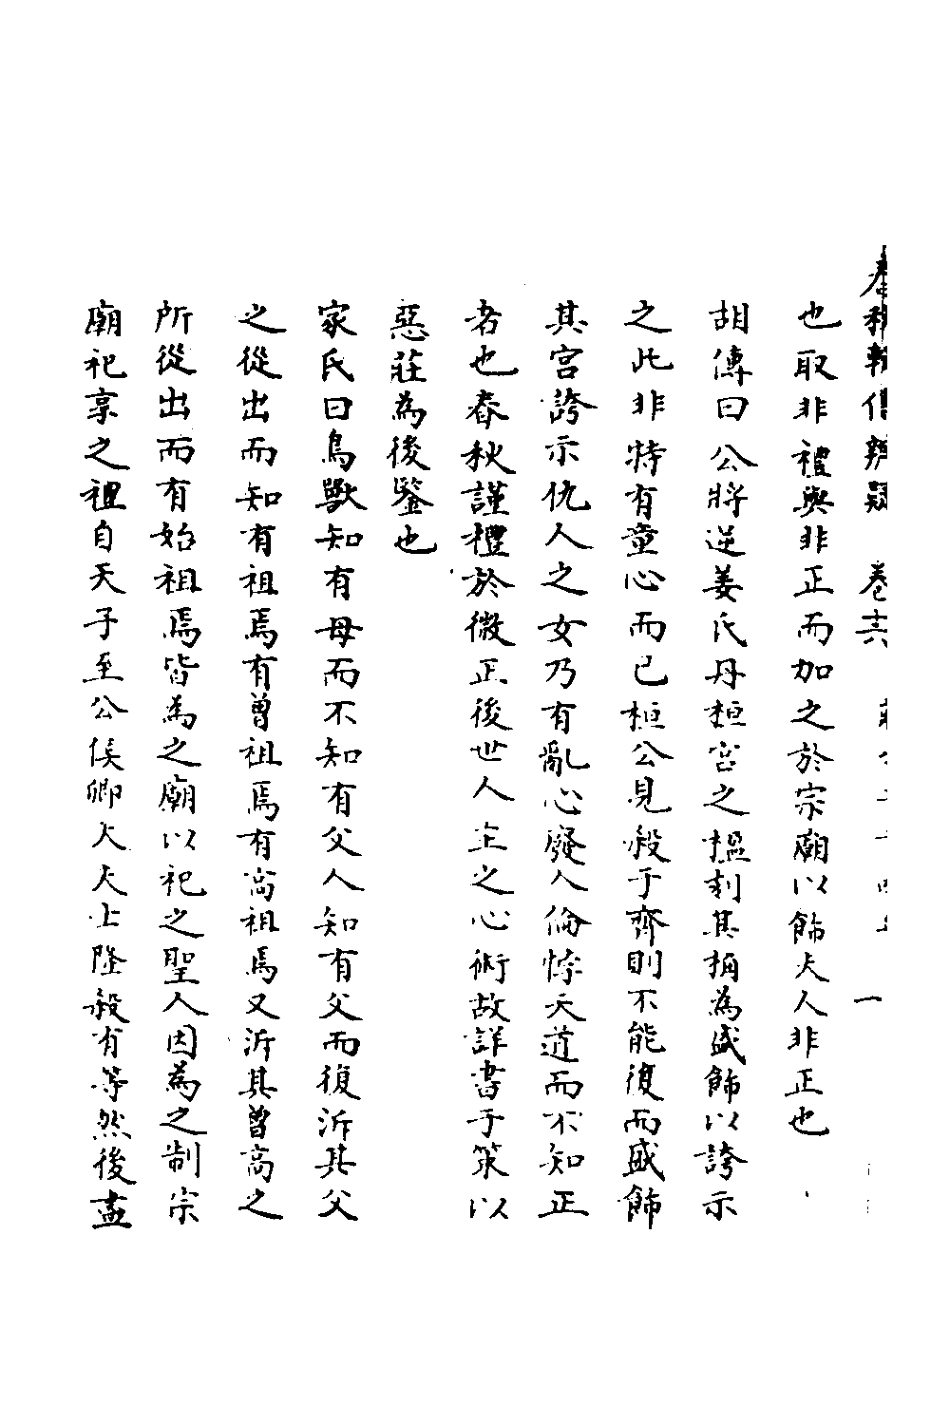 春秋輯傳辨疑　卷十六　　一
也取非禮與非正而加之於宗廟以飾夫人非正也
胡傳曰公將逆姜氏丹桓宮之楹刻其桷為盛飾以誇示
之此非特有童心而已桓公見殺于齊則不能復而盛飾
其宮誇示仇人之女乃有亂心廢人倫悖天道而不知正
者也春秋謹禮於微正後世人主之心術故詳書于策以
惡莊為後鑒也
家氏曰鳥獸知有母而不知有父人知有父而復泝其父
之從出而知有祖焉有曾祖焉有高祖焉又泝其曾高之
所從出而有始祖焉皆為之廟以祀之聖人因為之制宗
廟祀享之禮自天子至公侯卿大夫士隆殺有等然後盡